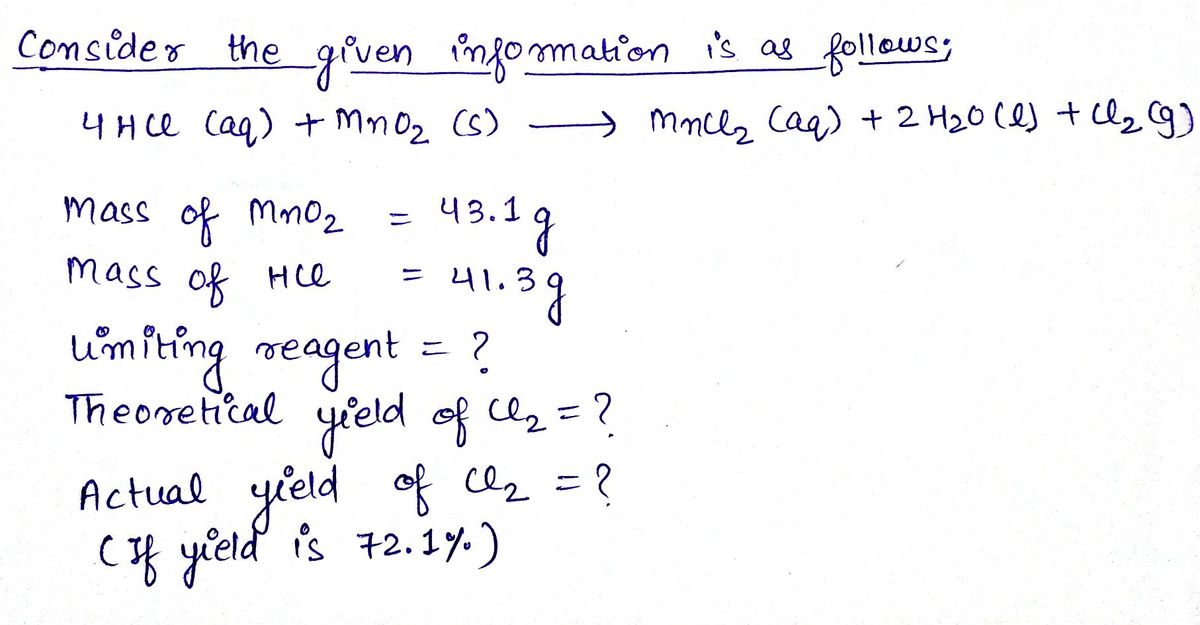 Consider the given information is as follows;
4HCl (aq) + MnO2 (s) ⟶ MnCl2 (aq) + 2H2O(l) + Cl2(g)
Mass of MnO2 = 43.1g
Mass of HCl = 41.3g
Limiting reagent = ?
Theoretical yield of Cl2 = ?
Actual yield of Cl2 = ?
(If yield is 72.1%)